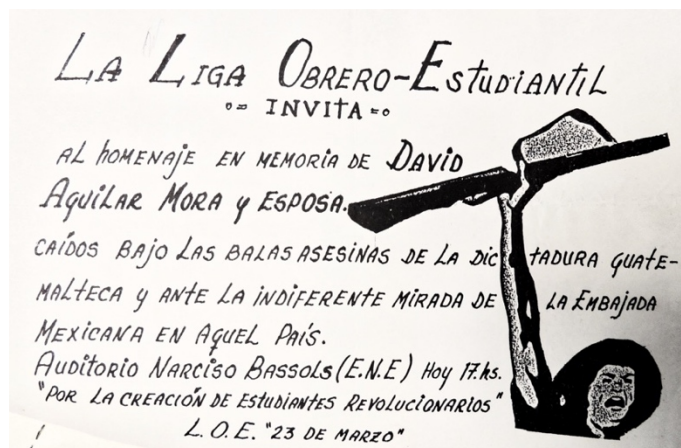 LA LIGA OBRERO-ESTUDIANTIL
INVITA
AL HOMENAJE EN MEMORIA DE DAVID
AGUILAR MORA Y ESPOSA.
CAÍDOS BAJO LAS BALAS ASESINAS DE LA DICTADURA GUATE-
MALTECA Y ANTE LA INDIFERENTE MIRADA DE LA EMBAJADA
MEXICANA EN AQUEL PAÍS.
AUDITORIO NARCISO BASSOLS (E.N.E) HOY 17. hs.
"POR LA CREACIÓN DE ESTUDIANTES REVOLUCIONARIOS"
L.O.E. "23 DE MARZO"